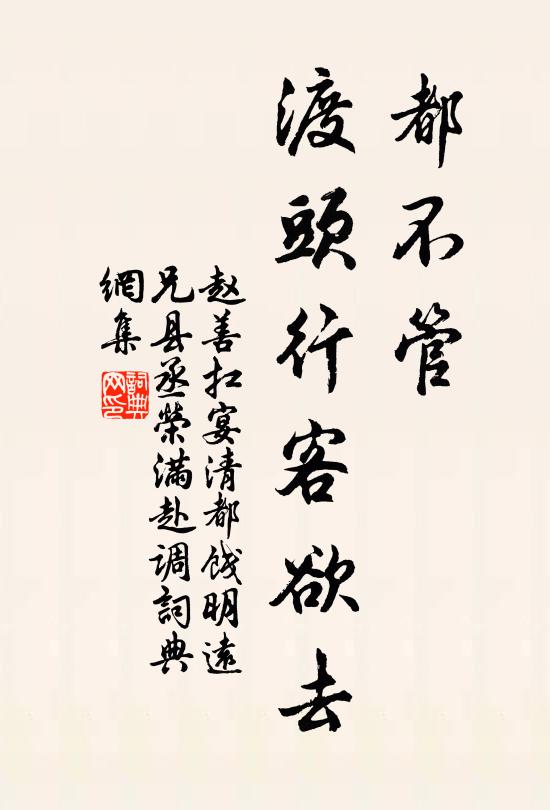 都不管
渡頭行客欲去
赵善扛宴清都饯明遠
兄县丞榮满赴调詞典
網集
詞典
网印